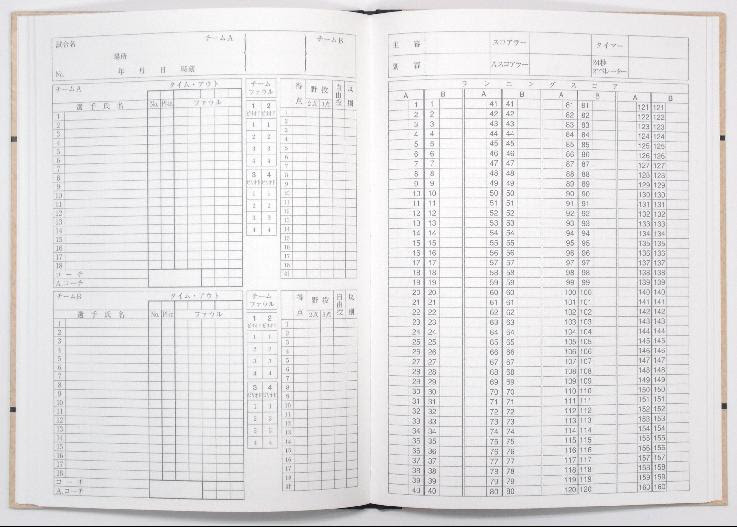 試合名 チームA チームB
場所
No. 年 月 日 時刻
チームA タイム・アウト チーム ファウル 得点 野投 自由投 反則
選手氏名 No. Pl.in ファウル 1 2 2点 3点
1
2
3
4
5
6
7
8
9
10
11
12
13
14
15
16
17
18
コーチ
A.コーチ
チームB タイム・アウト チーム ファウル 野投 自由投
選手氏名 No. ファウル 1 2 2点 3点
1
2
3
4
5
6
7
8
9
10
11
12
13
14
15
16
17
18
コーチ
A.コーチ
主審 スコアラー タイマー
副審 A.スコアラー 24秒オペレーター
ランニングスコア
A B A B A B A B
1 1 41 41 81 81 121 121
2 2 42 42 82 82 122 122
3 3 43 43 83 83 123 123
4 4 44 44 84 84 124 124
5 5 45 45 85 85 125 125
6 6 46 46 86 86 126 126
7 7 47 47 87 87 127 127
8 8 48 48 88 88 128 128
9 9 49 49 89 89 129 129
10 10 50 50 90 90 130 130
11 11 51 51 91 91 131 131
12 12 52 52 92 92 132 132
13 13 53 53 93 93 133 133
14 14 54 54 94 94 134 134
15 15 55 55 95 95 135 135
16 16 56 56 96 96 136 136
17 17 57 57 97 97 137 137
18 18 58 58 98 98 138 138
19 19 59 59 99 99 139 139
20 20 60 60 100 100 140 140
21 21 61 61 101 101 141 141
22 22 62 62 102 102 142 142
23 23 63 63 103 103 143 143
24 24 64 64 104 104 144 144
25 25 65 65 105 105 145 145
26 26 66 66 106 106 146 146
27 27 67 67 107 107 147 147
28 28 68 68 108 108 148 148
29 29 69 69 109 109 149 149
30 30 70 70 110 110 150 150
31 31 71 71 111 111 151 151
32 32 72 72 112 112 152 152
33 33 73 73 113 113 153 153
34 34 74 74 114 114 154 154
35 35 75 75 115 115 155 155
36 36 76 76 116 116 156 156
37 37 77 77 117 117 157 157
38 38 78 78 118 118 158 158
39 39 79 79 119 119 159 159
40 40 80 80 120 120 160 160